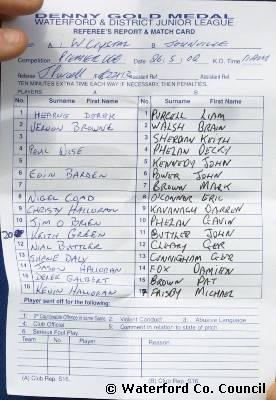 DENNY GOLD MEDAL
WATERFORD & DISTRICT JUNIOR LEAGUE
REFEREE'S REPORT & MATCH CARD
A W Crystal B Johnville
Competition Premier Date 26.5.02 K.O. Time 11AM
Referee Assistant Ref. Assistant Ref.
TEN MINUTES EXTRA TIME EACH WAY IF NECESSARY, THEN PENALTIES.
PLAYERS: A B
Surname First Name Surname First Name
1 HEARNE DEREK 1 PURCELL LIAM
2 VERNON BROWNE 2 WALSH BRIAN
3 3 SHERIDAN KEITH
4 PAUL WISE 4 PHELAN DECKY
5 5 KENNEDY JOHN
6 EDDIE BARDEN 6 POWER JOHN
7 7 BROWN MARK
8 NIGEL COAD 8 O'CONNOR ERIC
9 CHRISTY HALLORAN 9 KAVANAGH DARREN
10 JIM O BRIEN 10 PHELAN
20 KEITH GREEN 11 BUTTLER JOHN
12 NIAL BUTTLER 12 CLEARY GER
SHANE DALY CUNNIGHAM GER
JASON HALLORAN FOX DAMIEN
DEREK GALBERT BROWN PAT
16 KEVIN HALLORAN MICHAEL
Player sent off for the following:
2. Violent Conduct 3. Abusive Language
4. Club Official 5. Comment in relation to state of pitch
6. Serious Foul Play
Team No. Player Team No. Player
(A) Club Rep. S16. (B) Club Rep. S16.
© Waterford Co. Council